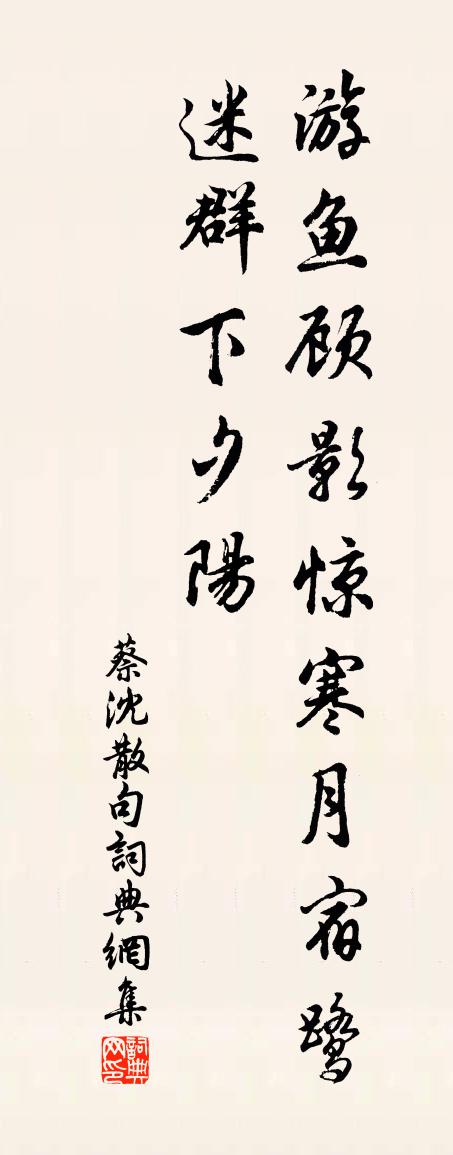 游鱼顾影惊寒月宿鹭
迷群下夕陽
蔡沈散句詞典網集
詞典网印